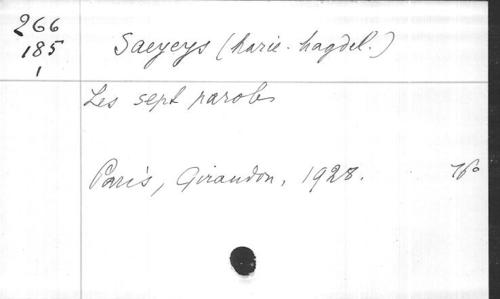 266
185
1
Saeyeys (Marie-Magdel.)
Les sept paroles
Paris, Giraudon, 1928.